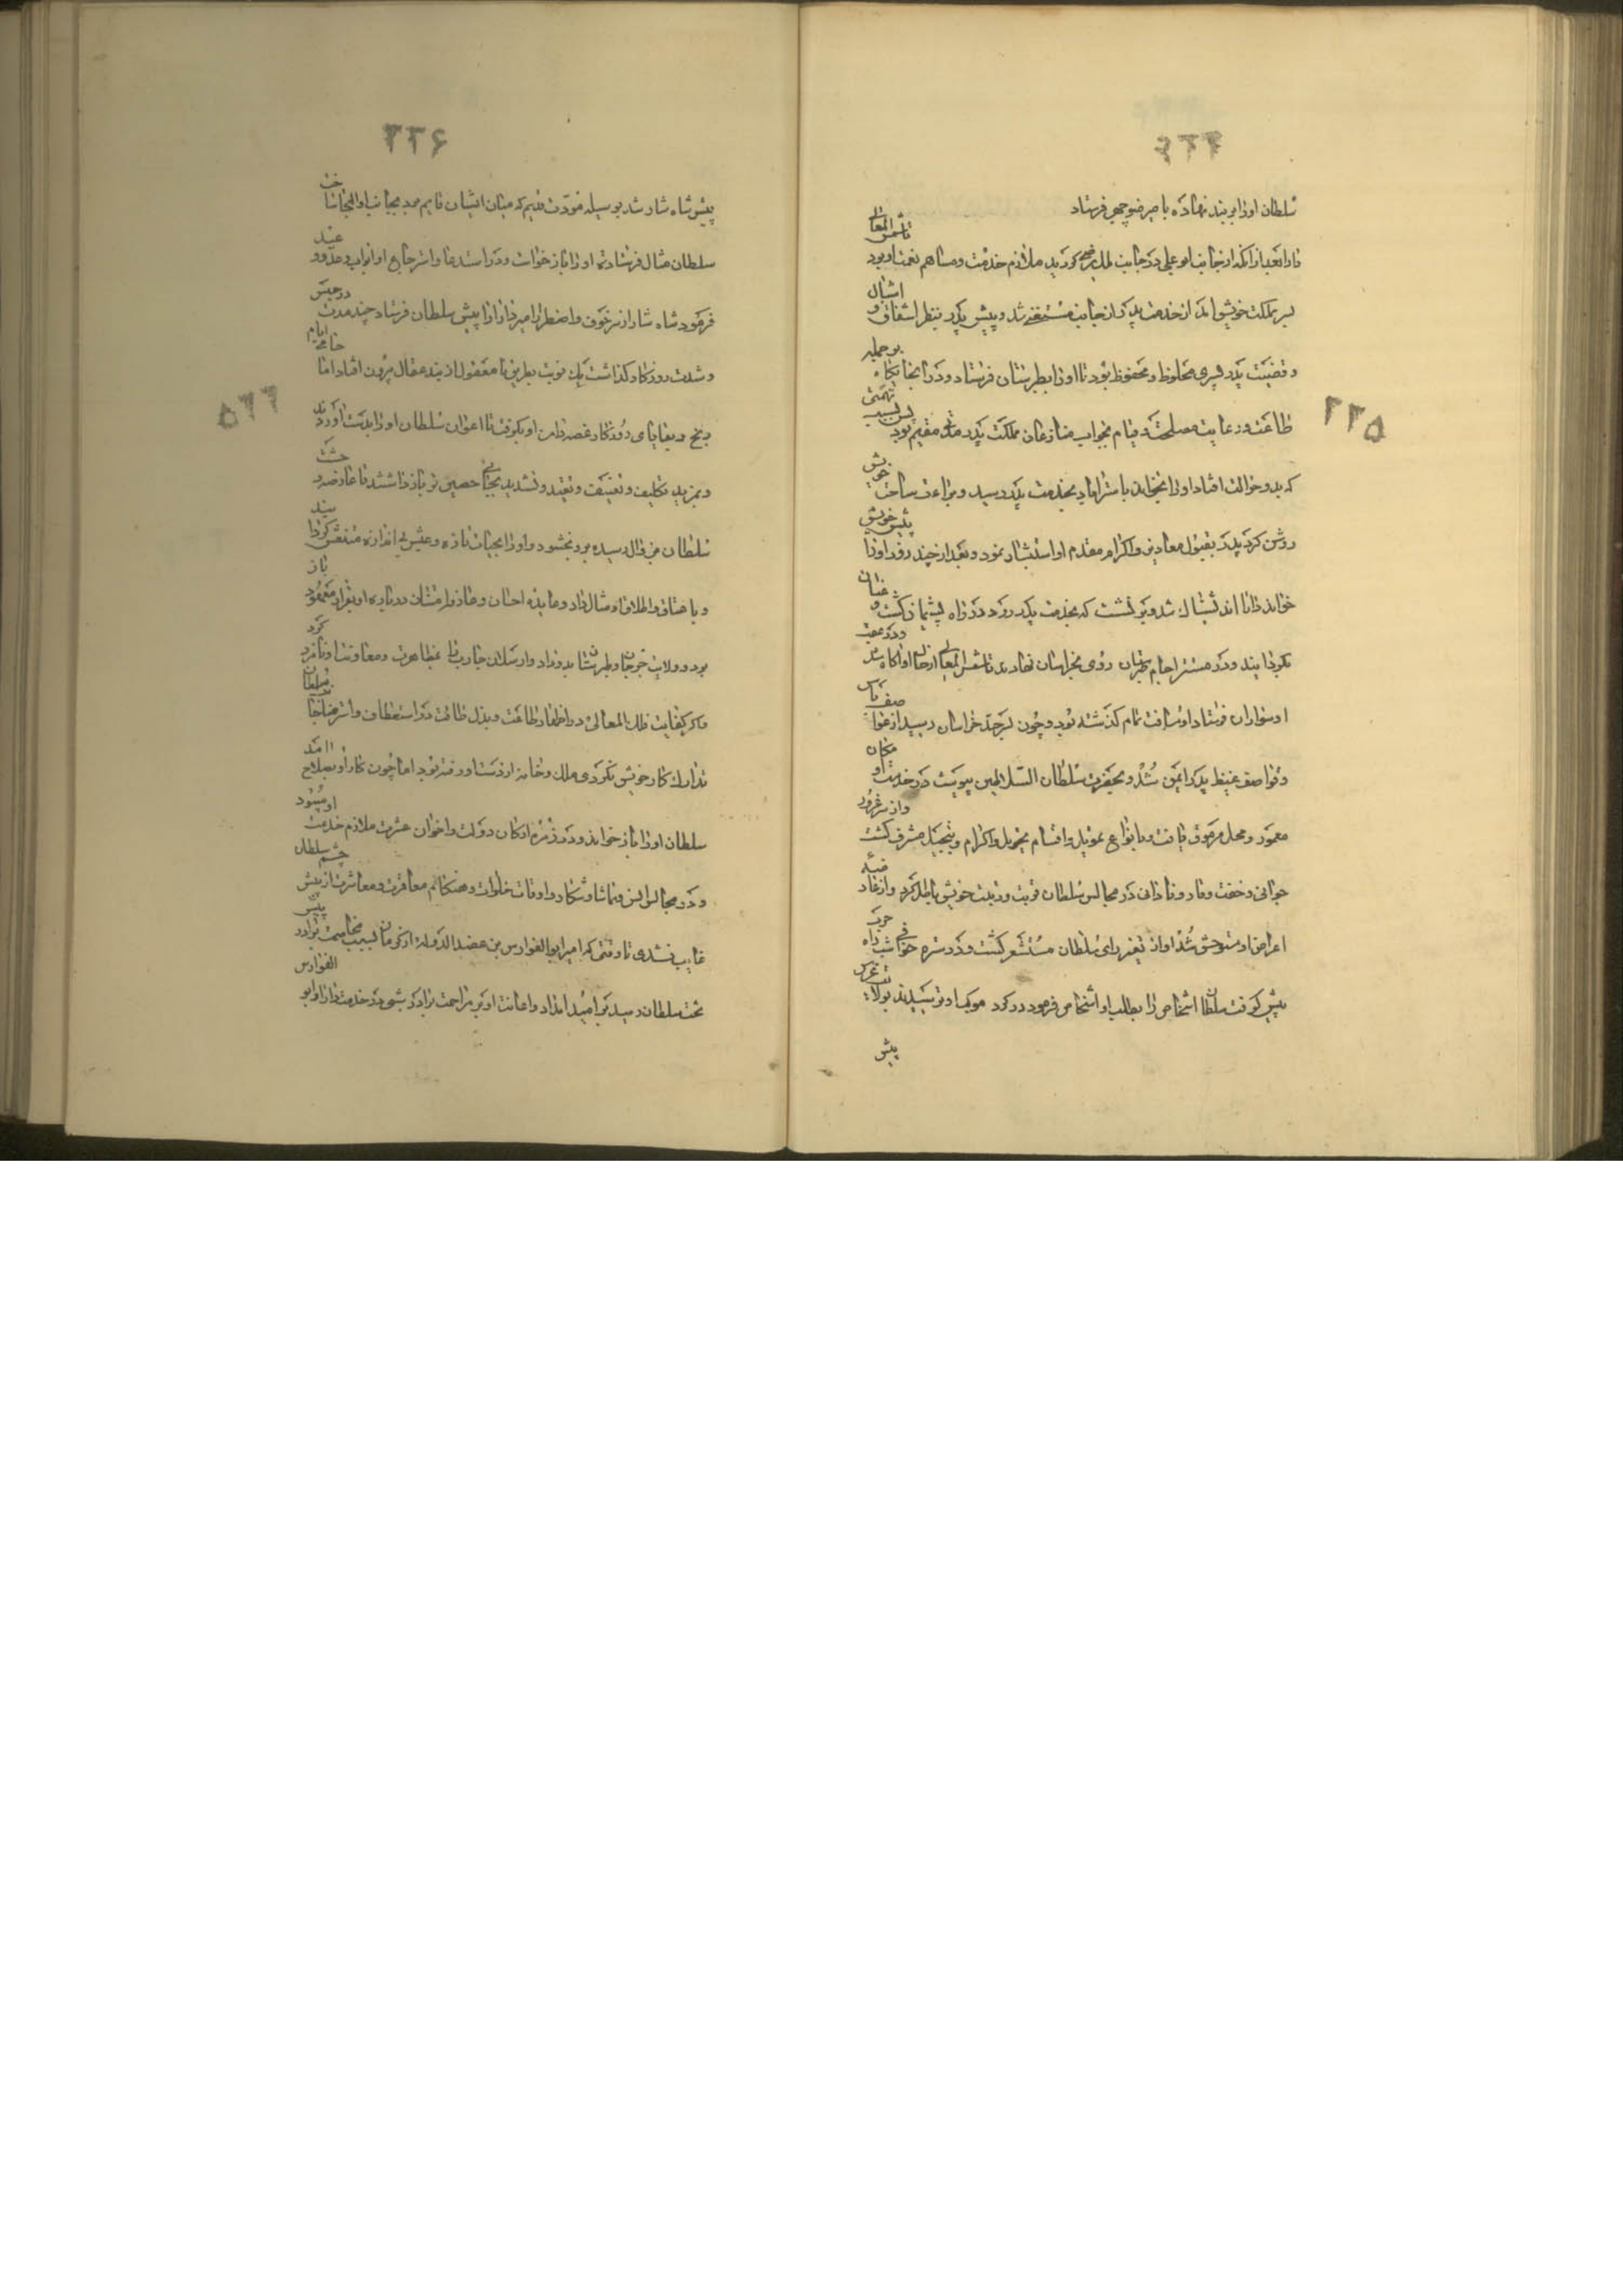 ۲۲۵
سلطان اورا بر بند نهاده با میر ضوجهی فرستاد
دارا بعد از آنکه از جانب ابو علی در جانب ملک رضی کردید ملازم خدمت و مساهم نعمت او بود تا شمس المعالی
بسر مملکت خویش آمد از خدمت پدر از جانب مستغنی شد و پیش پدر بنظر اشفاق و اشبال
و قضیت پدر فرزندی محظوظ و محفوظ بود تا اورا بطبرستان فرستاد و در آنجایگاه بر جمله
طاعت و رعایت مصلحت و قیام بجواب منازعان مملکت پدر مقیم بود پس بسبب تهمتی
که بدو حوالت افتاد اورا بخواند با ستراباد بخدمت پدر رسید و براءت ساحت خویش
روشن کرد پدر بقبول معاذیر و اکرام مقدم او استبشار نمود و بعد از چند روز اورا پیش خویش
خواند دارا اندیشناک شد و بر نشست که بخدمت پدر رود در راه پشیمان گشت و عنان
بگردانید و روی بخراسان نهاد تا شمس المعالی از حال او آگاه شد و در عقب
او سواران فرستاد او مسافت تمام گذشته بود و چون بسرحد خراسان رسید از غوایل
و قواصف غیظ پدر ایمن شد و بحضرت سلطان السلاطین پیوست در خدمت او مکان
معمور و محل مرموق یافت و بانواع تمویل و اقسام تخویل و اکرام و تبجیل مشرف گشت و از سر غرور
جوانی و خفت وقار و نادانی در مجالس سلطان قربت و رتبت خویش باطل کرد و از عار فتنه
اعراض او متوحش شد و از تغیر رای سلطان مستشعر گشت و در ستره خوافی شب راه
پیش گرفت سلطان اشخاص را بطلب او اشخاص فرمود در گرد موکب او نرسیدند بولایت
پیش
۲۲۶
پیش شاه شار شد بوسیله مودت قدیم که میان ایشان قایم بود بجانب او التجا ساخت
سلطان مثال فرستاد تا اورا باز خواست و در استدعا و استرجاع او ابواب وعد و وعید
فرمود شاه شار از سر خوف و اضطرار امیر دارا را پیش سلطان فرستاد چند مدت در حبس
و شدت روزگار گذاشت یک نوبت بطریق نامعقول از بند عقال بیرون افتاد اما
رنج و بقایای روزگار غصه دامن او بگرفت تا اعوان سلطان اورا بدست آوردند
و بمزید تکلیف و تعنیف و تقید و تشدید بجای حصین تر باز داشتند تا عارضه وحشت
سلطان بزوال رسید برو ببخشود و اورا بحیات تازه و عیش بی اندازه منتعش گردانید
و باعتاق و اطلاق او مثال داد
بود و ولایت جرجان و طبرستان بدو داد و ارسلان جاذب را بمظاهرت و معاونت او نامزد کرد
و اگر کفایت فلک المعالی در اظهار طاعت و بذل طاقت در استعطاف و استرضاء جانب سلطان
تدارک کار خویش نکردی ملک و خانه از دست او رفته بود اما چون کار او بصلاح آمد
سلطان اورا باز خواند و در زمره ارکان دولت و اخوان عشرت ملازم خدمت او می بود
و در مجالس انس و تماشا و شکار و اوقات خلوات و هنگام معاقرت و معاشرت از پیش چشم سلطان
غایب نشدی تا وقتی که امیر ابو الفوارس بن عضد الدوله از کرمان بسبب مخاصمت برادر پیش
تخت سلطان رسید بر امید امداد و اعانت او بر مزاحمت برادر شبی در خدمت دارا و ابو الفوارس